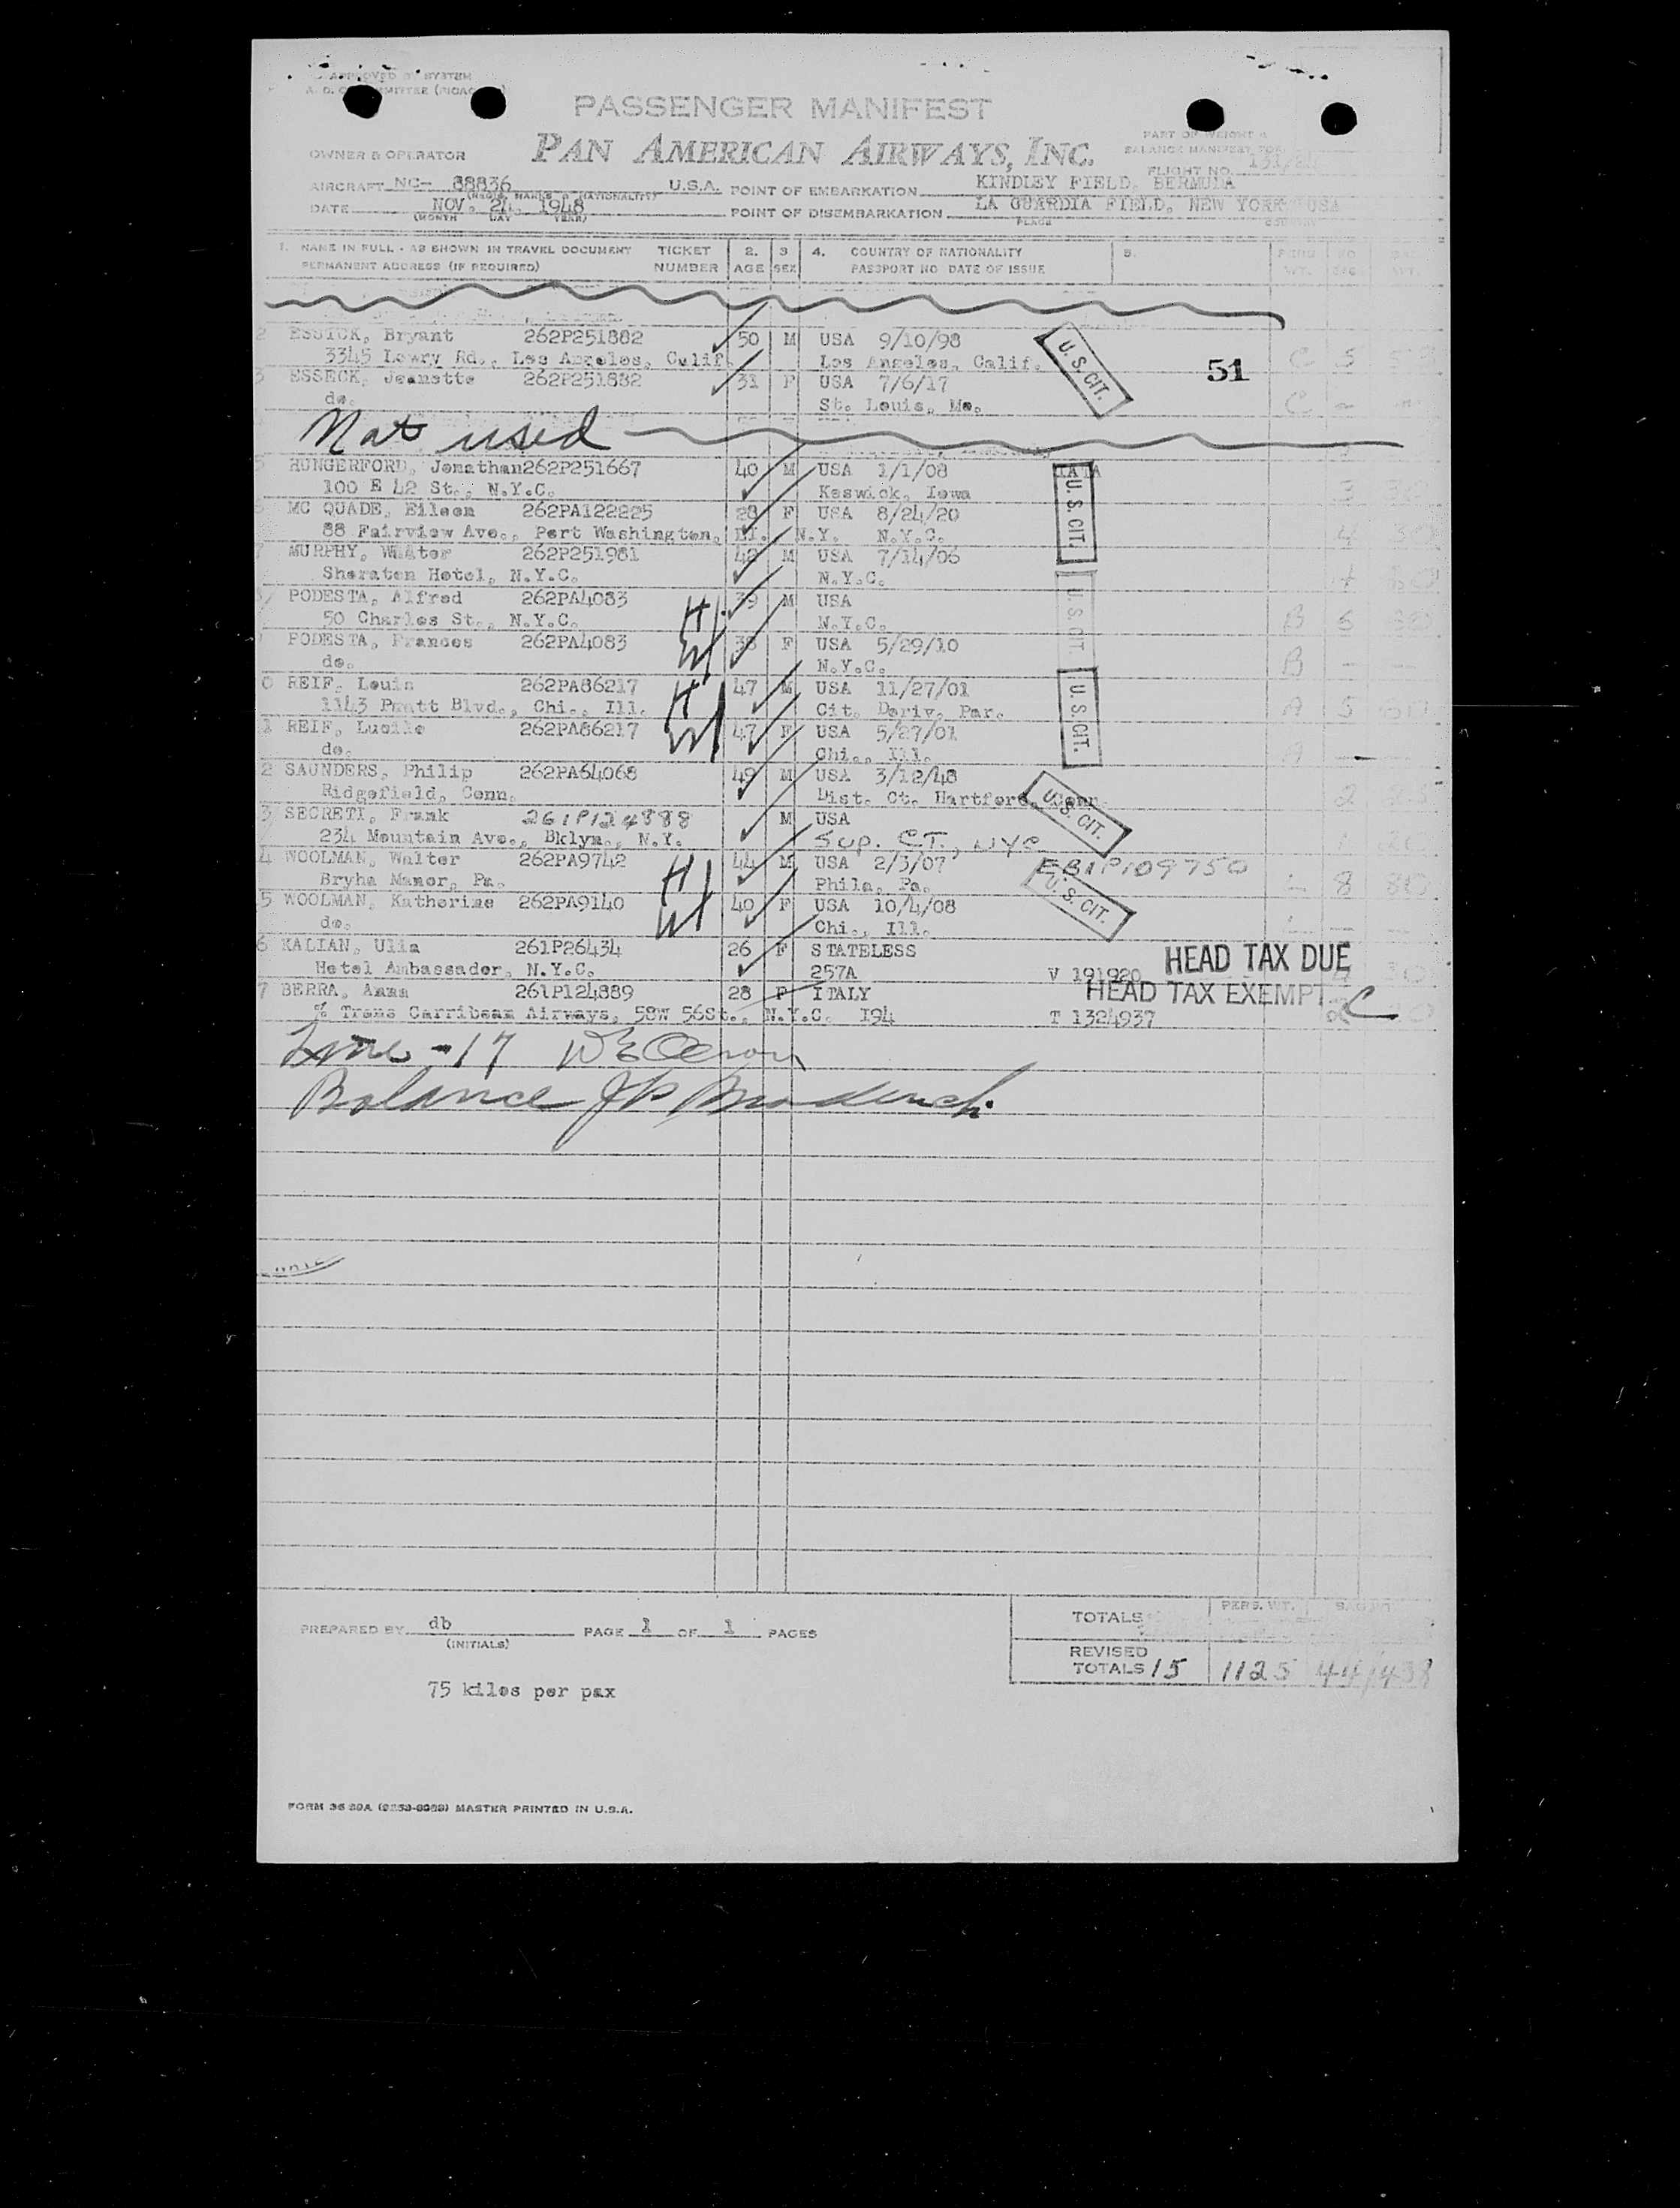 APPROVED BY SYSTEM
PASSENGER MANIFEST
PAN AMERICAN AIRWAYS, INC.
PART OF WEIGHT &
BALANCE MANIFEST FOR
OWNER & OPERATOR
FLIGHT NO. 131/24
AIRCRAFT NC- 88836 U.S.A. POINT OF EMBARKATION KINDLEY FIELD, BERMUDA
DATE NOV. 24, 1948 POINT OF DISEMBARKATION LA GUARDIA FIELD, NEW YORK USA
(MONTH DAY YEAR) PLACE COUNTRY
1. NAME IN FULL - AS SHOWN IN TRAVEL DOCUMENT TICKET 2. 3 4. COUNTRY OF NATIONALITY 5.
PERMANENT ADDRESS (IF REQUIRED) NUMBER AGE SEX PASSPORT NO DATE OF ISSUE
2 ESSICK, Bryant 262P251882 50 M USA 9/10/98 U. S. CIT.
3345 Lowry Rd., Los Angeles, Calif. Los Angeles, Calif. 51 C 5
3 ESSECK, Jeanette 262P251882 31 F USA 7/6/17
do. St. Louis, Mo. C -
Not used
HUNGERFORD, Jonathan 262P251667 40 M USA 1/1/08 IATA
100 E 42 St., N.Y.C. Keswick, Iowa U. S. CIT.
MC QUADE, Eileen 262PA122225 28 F USA 8/24/20
88 Fairview Ave., Port Washington, LI. N.Y. N.Y.C.
7 MURPHY, Walter 262P251981 42 M USA 7/14/06
Sheraton Hotel, N.Y.C. N.Y.C. U. S. CIT.
PODESTA, Alfred 262PA4083 39 M USA
50 Charles St., N.Y.C. H N.Y.C. B 6
PODESTA, Frances 262PA4083 38 F USA 5/29/10
do. W N.Y.C. B -
0 REIF, Louis 262PA86217 47 M USA 11/27/01 U. S. CIT.
1143 Pratt Blvd., Chi., Ill. H Cit. Deriv. Par. A 5
1 REIF, Lucile 262PA86217 47 F USA 5/27/01
do. W Chi., Ill. A -
2 SAUNDERS, Philip 262PA64068 49 M USA 3/12/48
Ridgefield, Conn. Dist. Ct. Hartford, Conn. U. S. CIT. 2
3 SECRETI, Frank 261P124888 M USA
234 Mountain Ave., Bklyn., N.Y. Sup. CT., NYC
4 WOOLMAN, Walter 262PA9742 44 M USA 2/3/07 EB1P109750
Bryha Manor, Pa. H Phila, Pa. U. S. CIT. 8 80
5 WOOLMAN, Katherine 262PA9140 40 F USA 10/4/08
do. W Chi., Ill.
6 KALIAN, Ulia 261P26434 26 F STATELESS HEAD TAX DUE
Hotel Ambassador, N.Y.C. 257A V 191920
7 BERRA, Anna 261P124889 28 F ITALY HEAD TAX EXEMPT C
% Trans Carribean Airways, 58W 56St., N.Y.C. I94 T 1324937
Line - 17
Balance
TOTALS PERS. WT.
PREPARED BY db PAGE 1 OF 1 PAGES
(INITIALS)
REVISED TOTALS 15 1125 44/438
75 kilos per pax
MASTER PRINTED IN U.S.A.